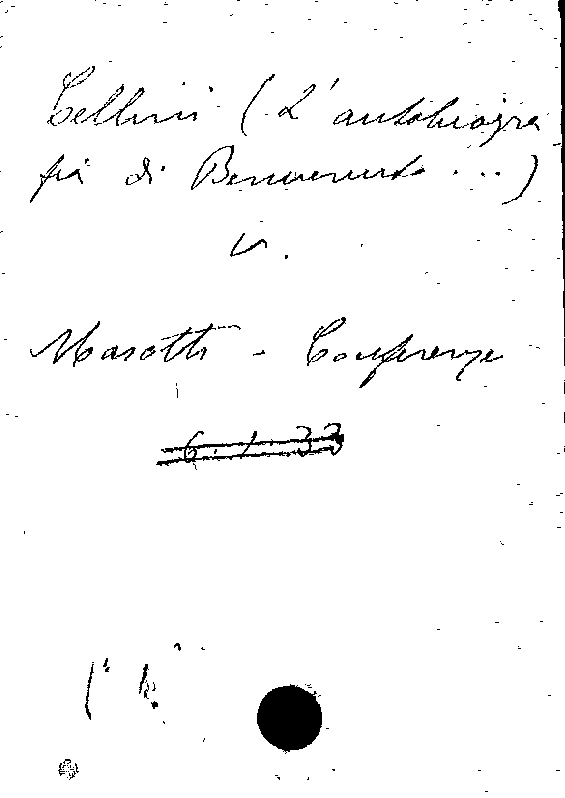 Cellini (L'autobiogra
fia di Benvenuto ...)
v.
Masotti - Conferenze
6. 1. 33